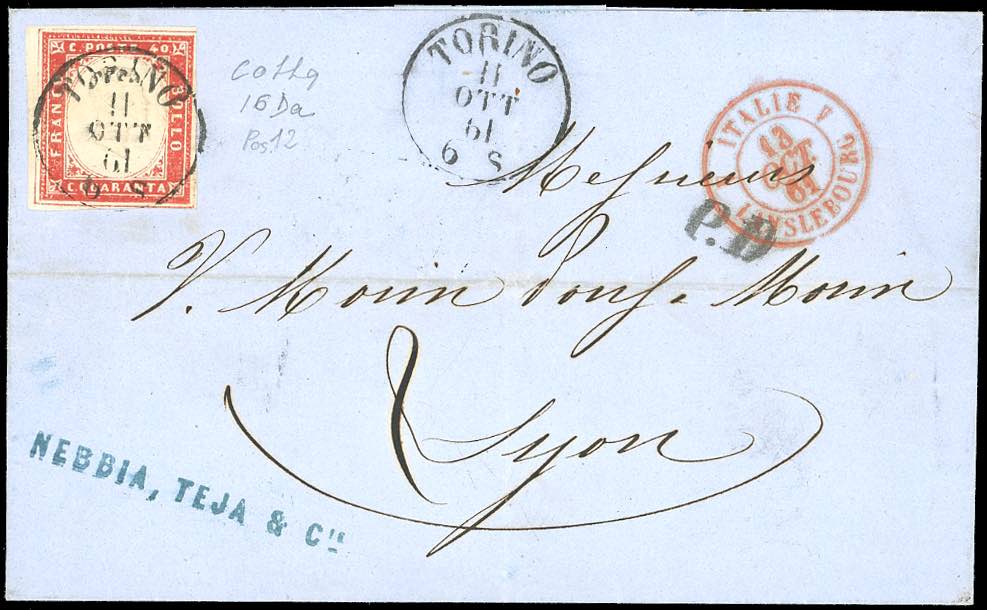 C. POSTE 40
FRANCO
BOLLO
C. QUARANTA
TORINO
11
OTT
61
6 S
Cotta
16Da
Pos.12
TORINO
11
OTT
61
6 S
ITALIE
13
OCT
61
LANSLEBOURG
P.D
Messieurs
V. Morin Morin
Lyon
NEBBIA, TEJA & Cⁱᵃ